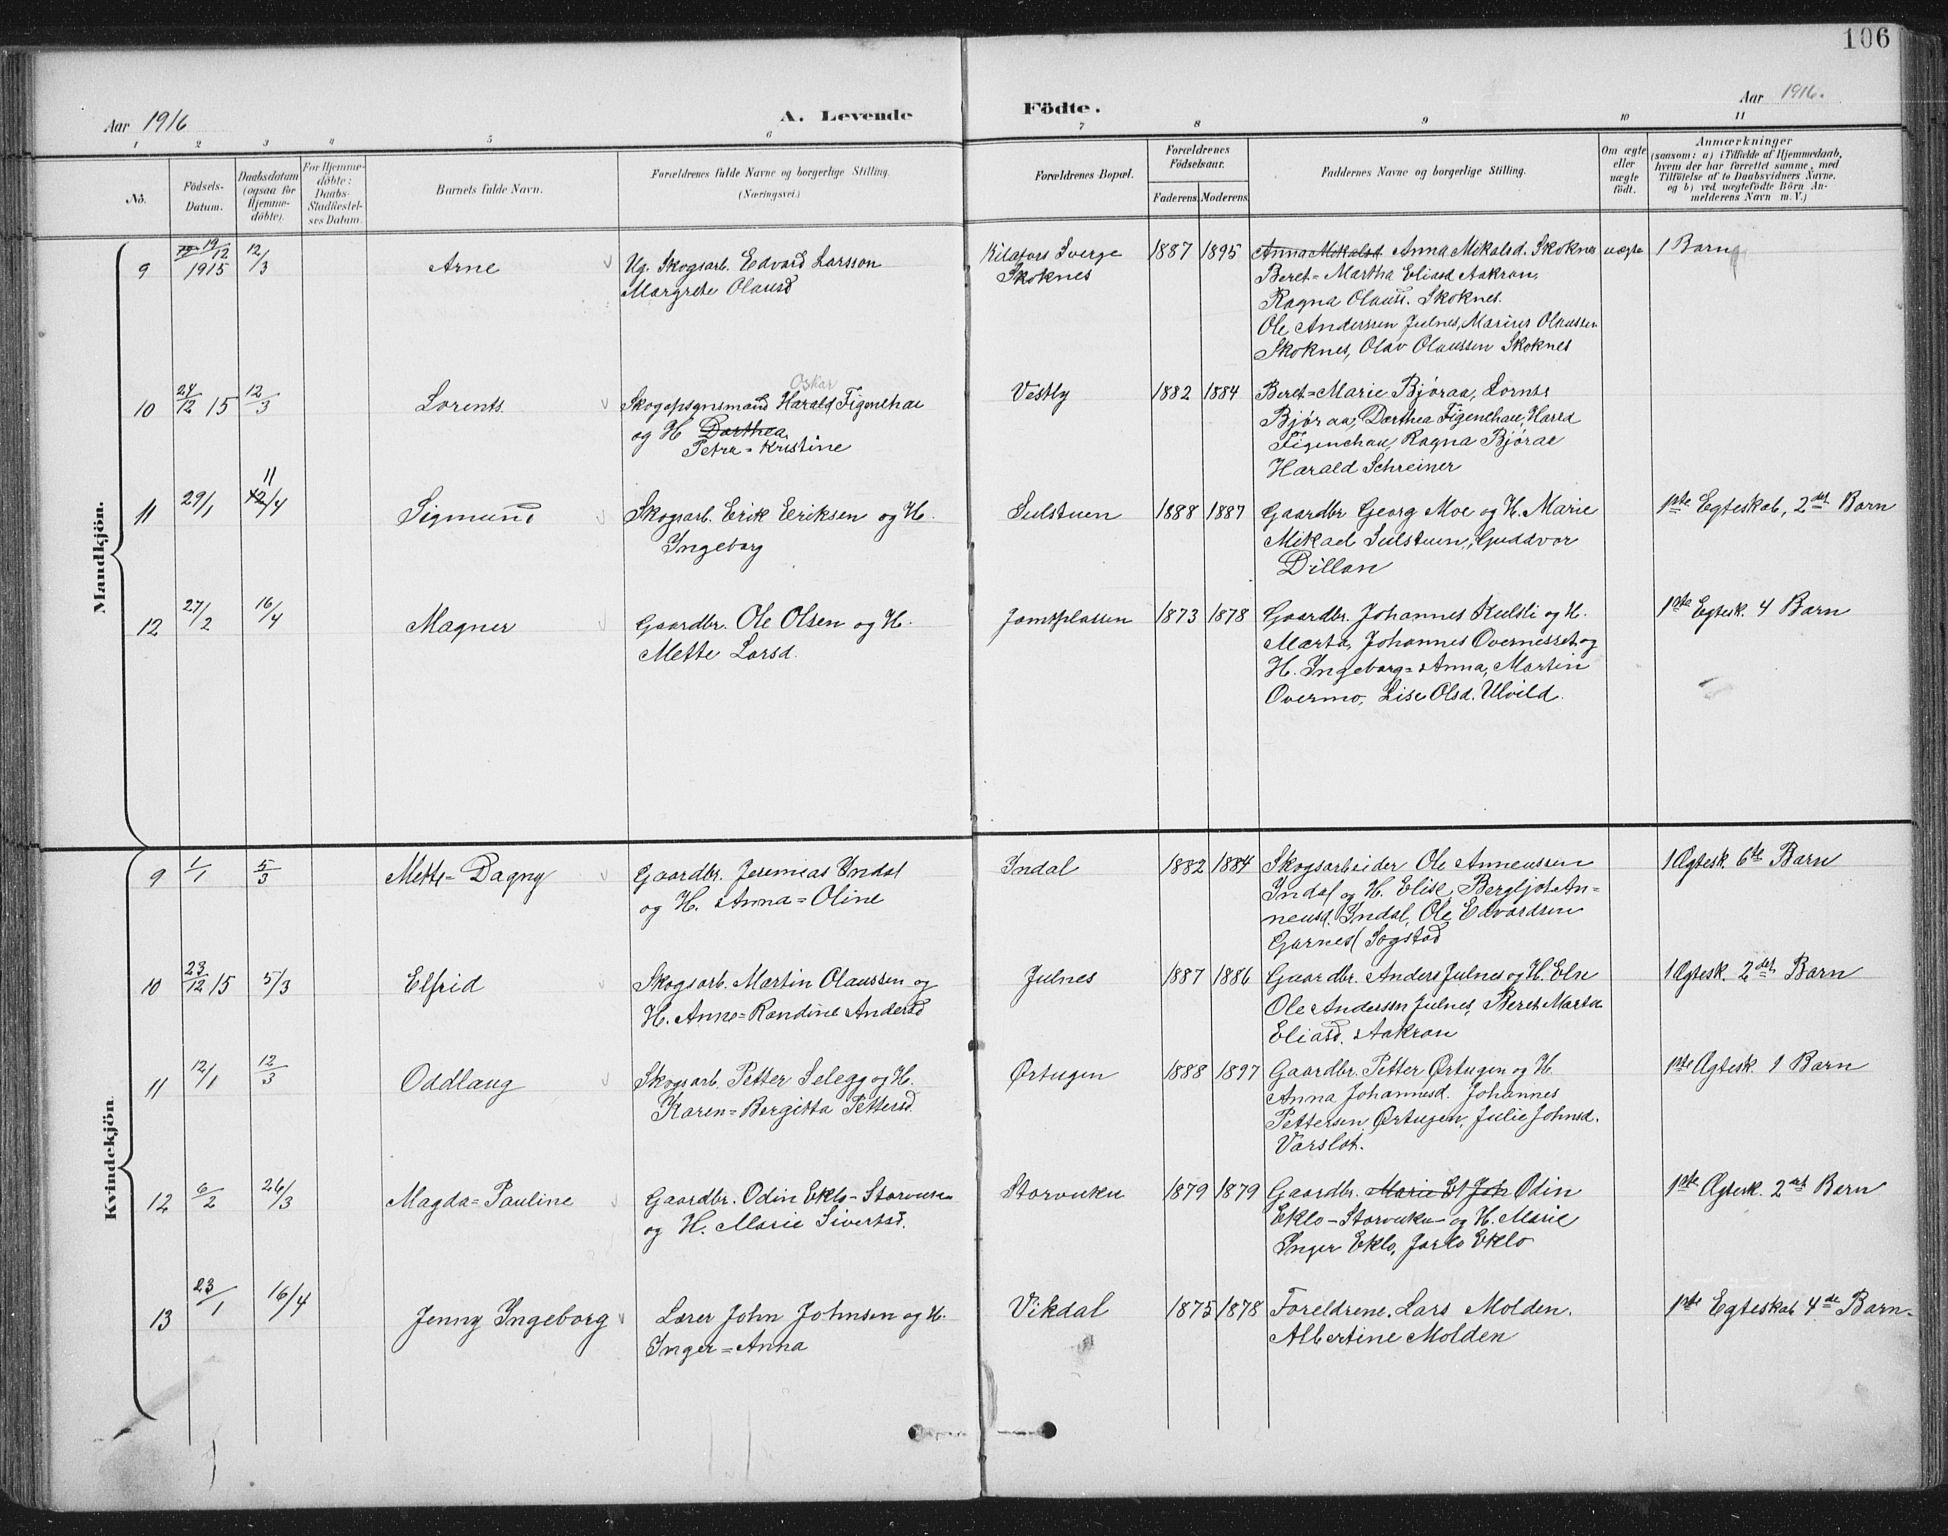 106
Aar 1916
A. Levende
Födte.
Aar 1916.
1 2 3 4 5 6 7 8 9 10 11
No.
Födsels-Datum.
Daabsdatum (ogsaa for Hjemme-döbte).
For Hjemme-döbte: Daabs-Stadfæstel-ses Datum.
Barnets fulde Navn.
Forældrenes fulde Navne og borgerlige Stilling. (Næringsvei.)
Forældrenes Bopæl.
Forældrenes Födselsaar.
Faderens. Moderens.
Faddernes Navne og borgerlige Stilling.
Om ægte eller uægte födt.
Anmærkninger
(saasom: a) i Tilfælde af Hjemmedaab,
hvem der har forrettet samme, med
Tilföielse af to Daabsvidners Navne.
og b) ved uægtefödte Börn An-
melderens Navn m. V.)
Mandkjön.
9 19/12 1915 12/3 Arne
Ug. Skogsarb. Edvard Larsson
Margrete Olausd
Sverge
Skoknes
1887 1895
Anna Mikalsd Anna Mikalsd. Skoknes
Beret-Martha Eliasd Aakran,
Ragna Olausd. Skoknes.
Ole Anderssen Julnes, Marius Olaussen
Skoknes, Olav Olaussen Skoknes
uægte
1 Barn
10 24/12 15 12/3 Lorents
Oskar
Skogopsynsmand Harald Figenchau
og H. Dorthea
Petra-Kristine
Vestly
1882 1884
Beret-Marie Björaa, Lornts
Björaa, Dorthea Figenchau, Harald
Figenchau, Ragna Björaa
Harald Schreiner
11 29/1 11
12/4 Sigmund
Skogsarb. Erik Eriksen og H.
Ingeborg
Sulstuen
1888 1887
Gaardbr Georg Moe og H. Marie
Mikael Sulstuen, Guddvor
Dillan
1ste Egteskab, 2det Barn
12 27/2 16/4 Magner
Gaardbr. Ole Olsen og H.
Mette Larsd.
Jamtplassen
1873 1878
Gaardbr. Johannes Kulsli og H.
Marta, Johannes Overnesset og
H. Ingeborg-Anna, Martin
Overmo, Lise Olsd. Ulvild.
1ste Egtesk. 4 Barn
Kvindekjön.
9 1/1 5/3 Mette-Dagny
Gaardbr. Jeremias Indal
og H. Anna-Oline
Indal
1882 1884
Skogsarbeider Ole Anneussen
Indal og H. Elise, Bergljot An-
neusd. Indal, Ole Edvardsen
Garnes Sogstad
1 Ægtesk. 6te Barn
10 23/12 15 5/3 Elfrid
Skogsarb. Martin Olaussen og
H. Anne-Randine Andersd
Julnes
1887 1886
Gaardbr. Anders Julnes og H. Else
Ole Anderssen Julnes, Beret Marta
Eliasd. Aakran
1 Ægtesk. 2det Barn
11 12/1 12/3 Oddlaug
Skogsarb. Petter Selegg og H.
Karen-Bergitta Pettersd.
Ørtugen
1888 1897
Gaardbr. Petter Ørtugen og H.
Anna Johannesd. Johannes
Pettersen Ørtugen, Julie Johnsd.
Varslot.
1ste Ægtesk. 1 Barn
12 6/2 26/3 Magda-Pauline
Gaardbr. Odin Eklo-Storvuku
og H. Marie Sivertsd.
Storvuku
1879 1879
Gaardbr. Marie Joh Odin
Eklo-Storvuku og H. Marie
Inger Eklo, Jarlo Eklo
1ste Ægtesk. 2det Barn
13 23/1 16/4 Jenny Ingeborg
Lærer John Johnsen og H.
Inger-Anna
Vikdal
1875 1878
Foreldrene. Lars Molden.
Albertine Molden
1ste Egteskab 4de Barn.